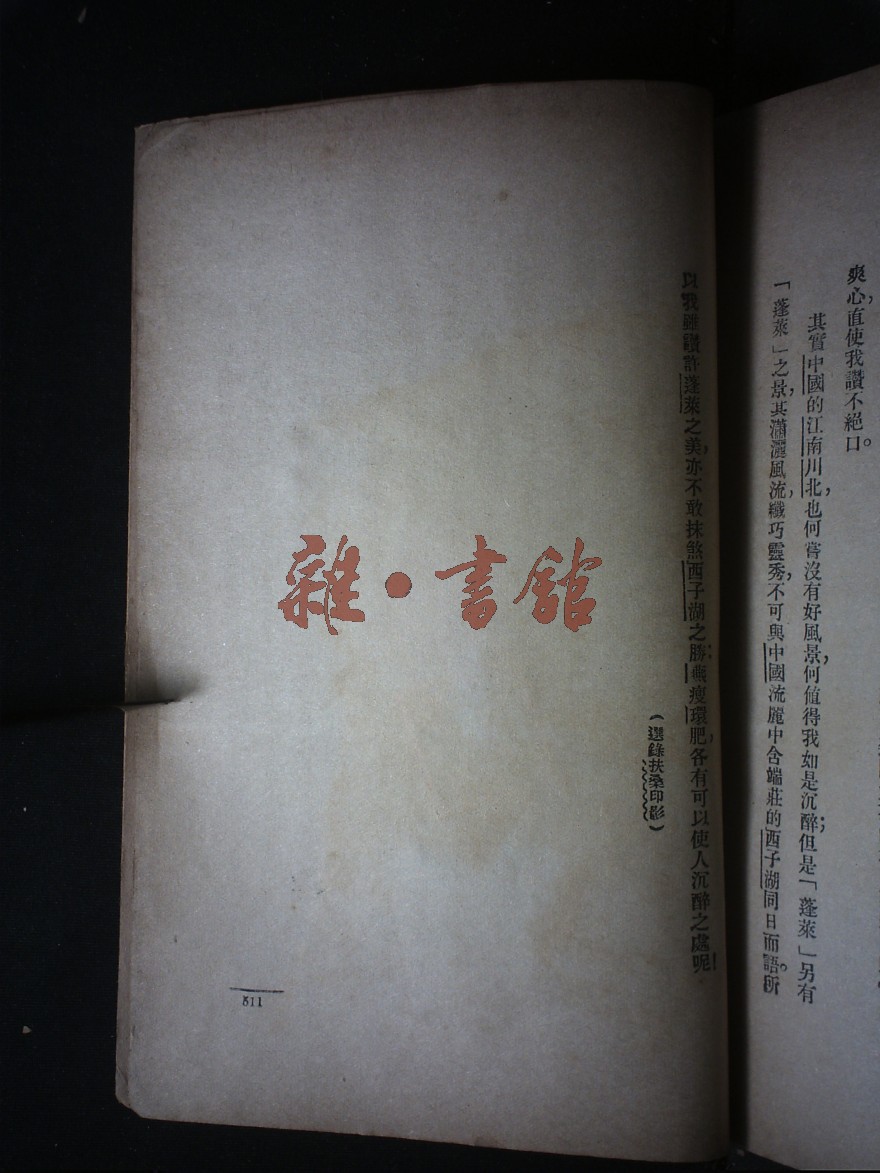 爽心，直使我讚不絕口。
其實中國的江南川北，也何嘗沒有好風景，何值得我如是沉醉；但是「蓬萊」另有
「蓬萊」之景，其瀟灑風流，纖巧靈秀，不可與中國流麗中含端莊的西子湖同日而語。所
以我雖讚許蓬萊之美，亦不敢抹煞西子湖之勝；燕瘦環肥，各有可以使人沉醉之處呢！
（選錄扶桑印影）
511
雜·書館